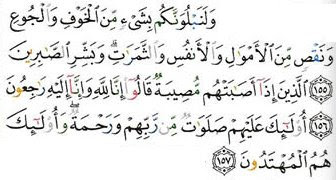 وَلَنَبْلُوَنَّكُم بِشَىْءٍ مِّنَ الْخَوْفِ وَالْجُوعِ
وَنَقْصٍ مِّنَ الْأَمْوَالِ وَالْأَنفُسِ وَالثَّمَرَاتِ ۗ وَبَشِّرِ الصَّابِرِينَ
۝١٥٥ الَّذِينَ إِذَا أَصَابَتْهُم مُّصِيبَةٌ قَالُوا إِنَّا لِلَّهِ وَإِنَّا إِلَيْهِ رَاجِعُونَ
۝١٥٦ أُولَٰئِكَ عَلَيْهِمْ صَلَوَاتٌ مِّن رَّبِّهِمْ وَرَحْمَةٌ ۖ وَأُولَٰئِكَ
هُمُ الْمُهْتَدُونَ ۝١٥٧